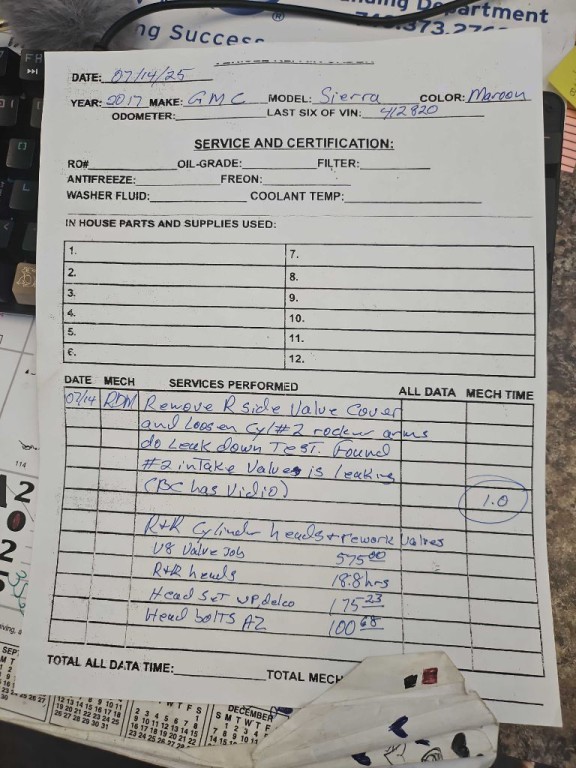 ng Success
artment
DATE: 07/14/25
YEAR: 2017 MAKE: GMC MODEL: Sierra COLOR: Maroon
ODOMETER: LAST SIX OF VIN: 412820
SERVICE AND CERTIFICATION:
RO# OIL-GRADE: FILTER:
ANTIFREEZE: FREON:
WASHER FLUID: COOLANT TEMP:
IN HOUSE PARTS AND SUPPLIES USED:
1. 7.
2. 8.
3. 9.
4. 10.
5. 11.
6. 12.
DATE MECH SERVICES PERFORMED ALL DATA MECH TIME
07/14 RDM Remove R side Valve Cover
and Loosen Cyl #2 rocker arms
do Leak down Test. Found
#2 intake Valve is leaking
(BC has Vidio) 1.0
R+R Cylinder heads + rework Valves
V8 Valve Job 575.00
R+R heads 18.8 hrs
Head Set WP, delco 175.23
Head bolts AZ 100.68
TOTAL ALL DATA TIME: TOTAL MECH
DECEMBER
S M T W T F S